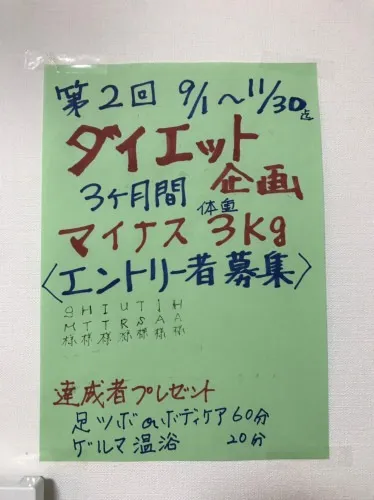 第2回 9/1〜11/30迄
ダイエット
3ヶ月間 企画
体重
マイナス 3Kg
〈エントリー者募集〉
9 H I U T I H
M T T R S A A
様 様 様 様 様 様 様
達成者プレゼント
足ツボorボディケア60分
ゲルマ温浴 20分